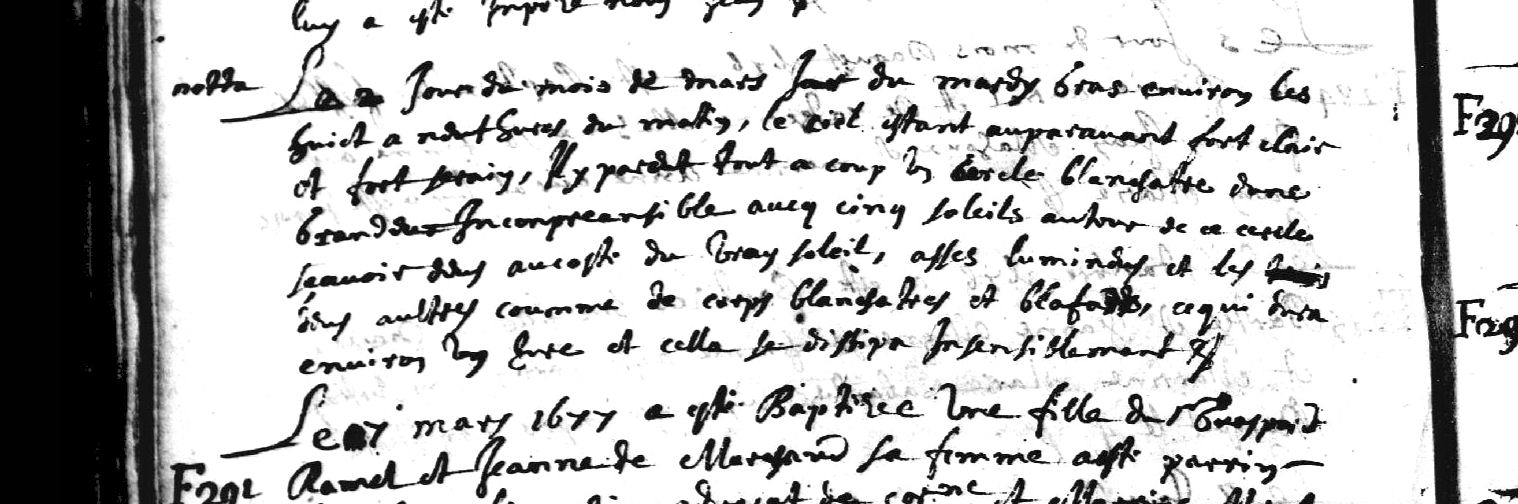 luy a esté Imposé nom Jean
notta Le 2 Jour du mois de mars Jour du mardy Gras environ les
huict a neuf hures du matin, le ciel estant auparavant fort clair
et fort serain, Il y pareut tout a coup Un cercle blanchatre dune
Grandeur Incompreansible avecq cinq soleils autour de ce cercle
scavoir deus au costé du Vray soleil, asses lumineus et les
deus aultres coumme de corps blanchatres et blafords, ce qui dura
environ Un hure et cella se dissipa Insensiblemant
Le 7 mars 1677 a esté Baptizee Une fille du Sr
F291 Ramel et Jeanne de Marchand sa femme a esté parrin
F29
F29